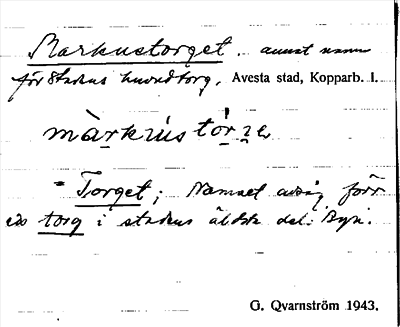 Markustorget. annat namn
för stadens huvudtorg, Avesta stad, Kopparb. l.
màrkùstór
= Torget; Namnet avsåg förr
torg i stadens äldsta del: Byn.
G. Qvarnström 1943.